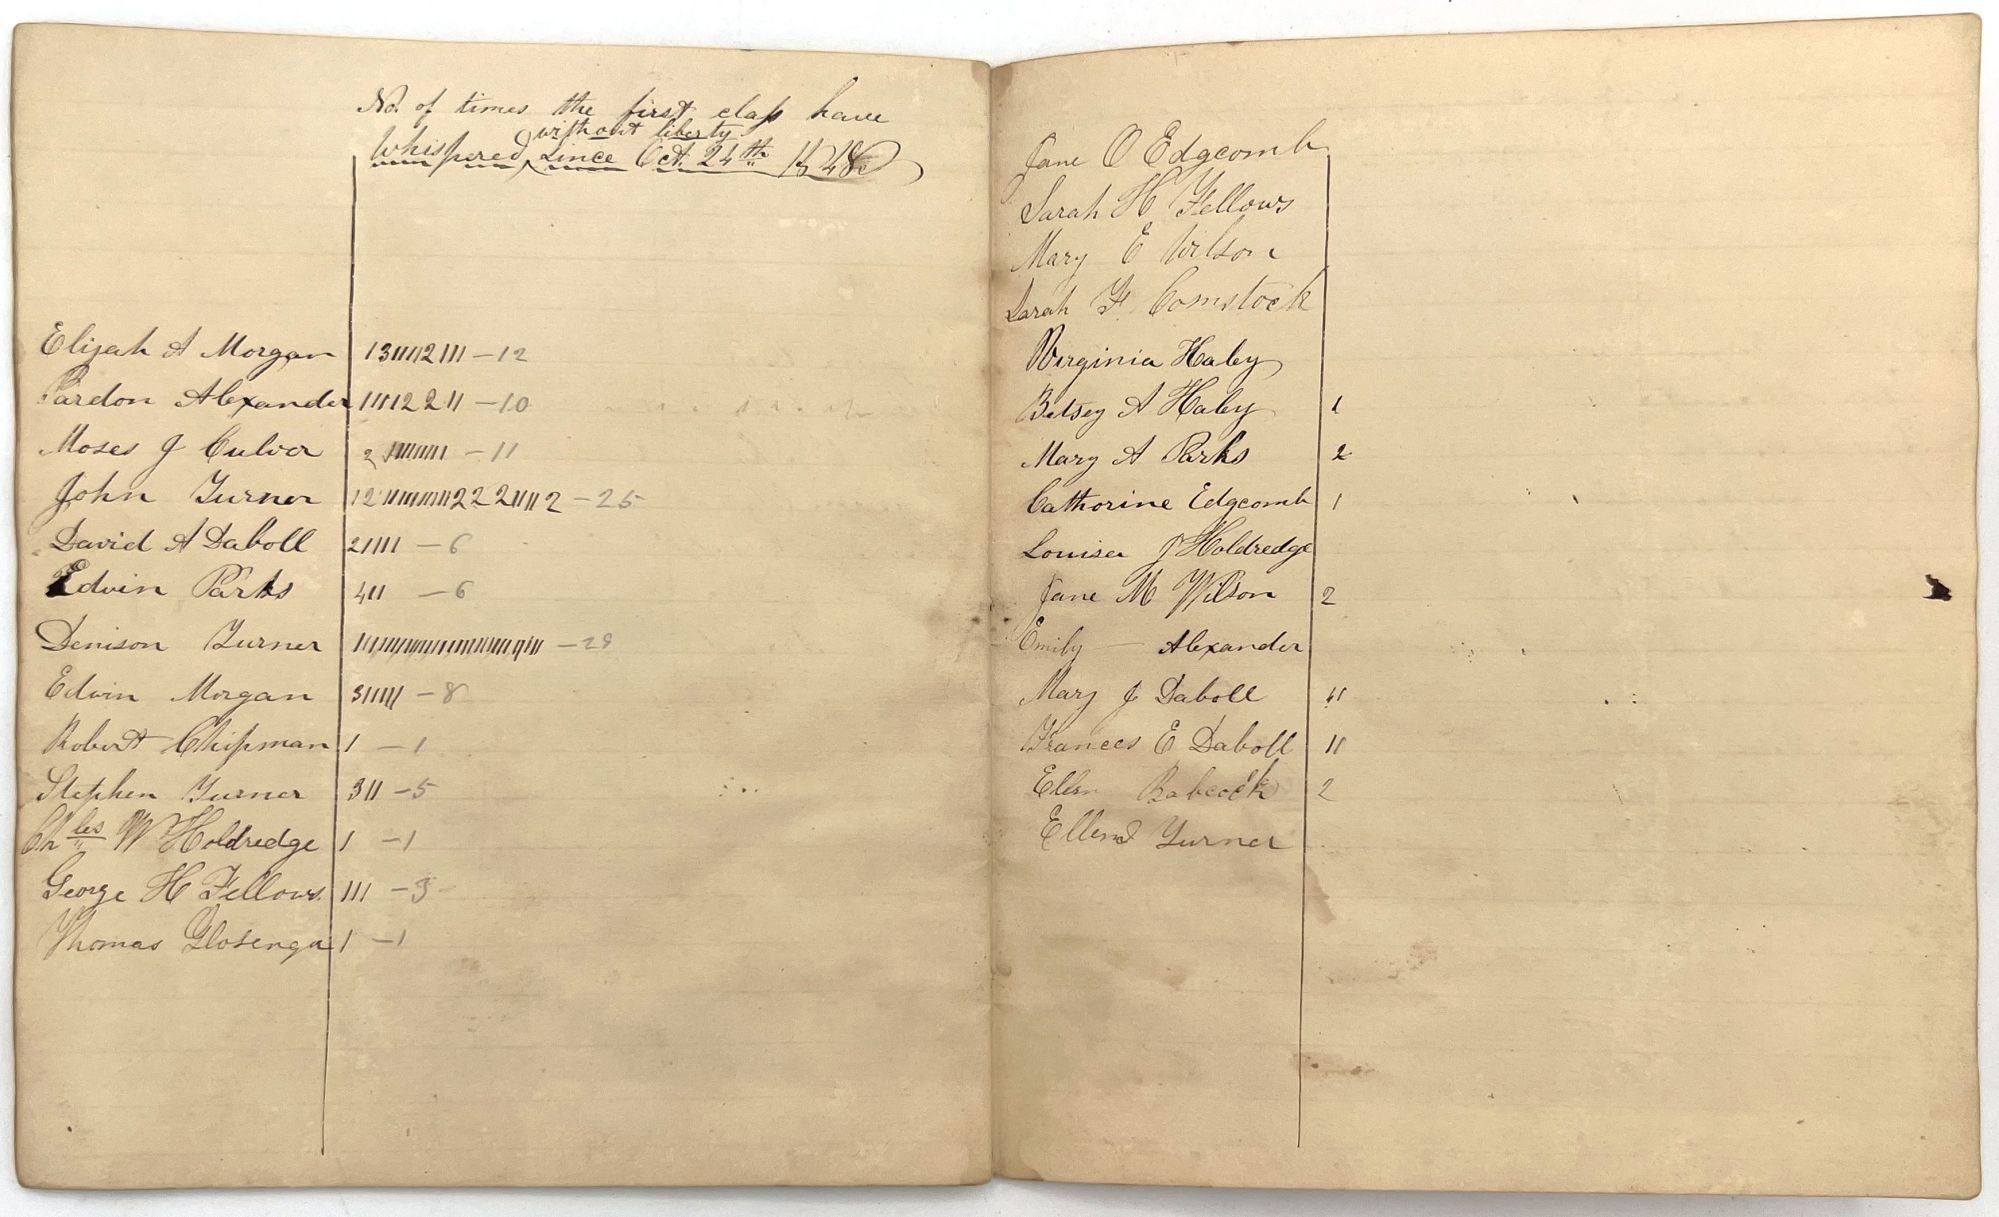 No. of times the first class have
without liberty
Whispered since Oct. 24th 1848
Elijah A Morgan 13111121 11 – 12
Pardon Alexander 111122 11 – 10
Moses J Culver – 11
John Turner – 25
David A Daboll 21111 – 6
Edwin Parks 411 – 6
Denison Turner
Edwin Morgan 311111 – 8
Robert Chipman 1 – 1
Stephen Turner 311 – 5
Chles W Holdredge 1 – 1
George H Fellows 111 – 3
Thomas 1 – 1
Jane O Edgcomb
Sarah H Fellows
Mary E Wilson
Sarah F Comstock
Virginia Haley
Betsey A Haley 1
Mary A Parks 2
Catherine Edgcomb 1
Louisa J Holdredge
Jane M Wilson 2
Emily — Alexander
Mary J Daboll 11
Frances E Daboll 11
Ellen Babcock 2
Ellen Turner